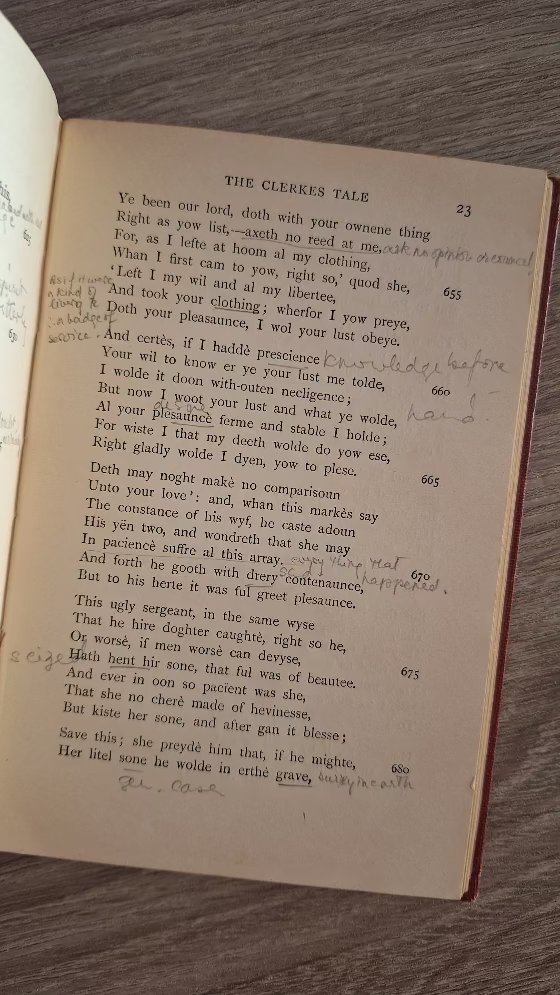 THE CLERKES TALE 23
Ye been our lord, doth with your ownene thing
Right as yow list,—axeth no reed at me, ask no opinion or counsel
For, as I lefte at hoom al my clothing,
Whan I first cam to yow, right so,' quod she,
'Left I my wil and al my libertee, 655
And took your clothing; wherfor I yow preye,
Doth your pleasaunce, I wol your lust obeye.
as if it were
a kind of
livery &
∴ a badge of
service.
And certès, if I haddè prescience knowledge before
hand.
Your wil to know er ye your lust me tolde,
I wolde it doon with-outen necligence; 660
But now I woot your lust and what ye wolde,
desire
Al your plesauncè ferme and stable I holde;
For wiste I that my deeth wolde do yow ese,
Right gladly wolde I dyen, yow to plese.
Deth may noght makè no comparisoun 665
Unto your love': and, whan this markès say
The constance of his wyf, he caste adoun
His yën two, and wondreth that she may
In paciencè suffre al this array. everything that
happened.
And forth he gooth with drery contenaunce, 670
But to his herte it was ful greet plesaunce.
This ugly sergeant, in the same wyse
That he hire doghter caughtè, right so he,
Or worsè, if men worsè can devyse,
seized
Hath hent hir sone, that ful was of beautee. 675
And ever in oon so pacient was she,
That she no cherè made of hevinesse,
But kiste her sone, and after gan it blesse;
Save this; she preydè him that, if he mighte,
Her litel sone he wolde in erthè grave, 680 bury in earth
gen. case